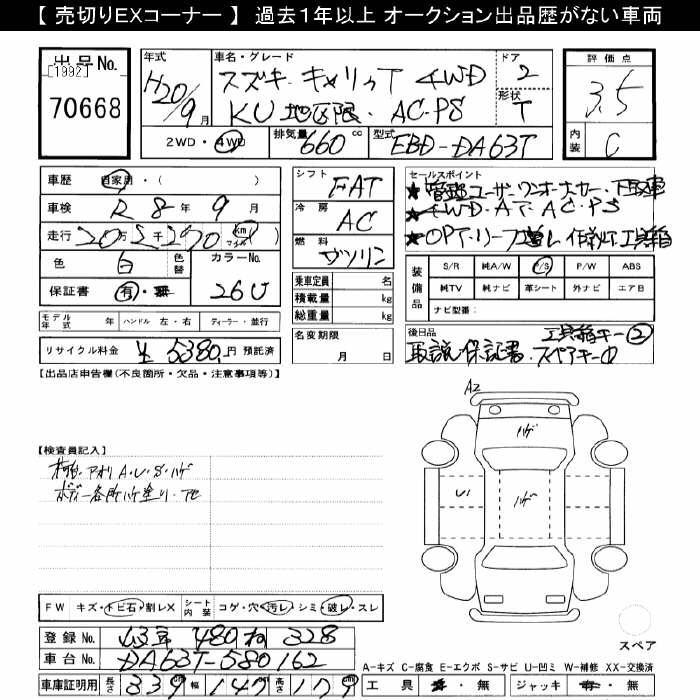 【 売切りEXコーナー 】 過去1年以上 オークション出品歴がない車両
出品No.
[1992]
70668
年式
H20/9月
車名・グレード
スズキ キャリィT 4WD
KU 地区限. AC.PS
ドア
2
形状
T
評価点
3.5
内装
C
2WD・4WD
排気量
660 cc
型式
EBD-DA63T
車歴
自家用・( )
車検
R 8年 9月
走行
20万2千290 km マイル
色
白
色替
カラーNo.
26U
保証書
有・無
モデル年式 年
ハンドル 左・右
ディーラー・並行
リサイクル料金
¥5380円 預託済
シフト
FAT
冷房
AC
燃料
ガソリン
乗車定員 名
積載量 kg
総重量 kg
名変期限
月 日
セールスポイント
★ユーザーワンオーナー・下取車
★4WD・AT・AC・PS
装備品
S/R 純A/W P/S P/W ABS
純TV 純ナビ 革シート 外ナビ エアB
ナビ型番:
後日品
工具箱キー②
取説、保証書、スペアキー①
【出品店申告欄(不良箇所・欠品・注意事項等)】
【検査員記入】
アオリA・U・S・ハゲ
ボディー各所ハケ塗り・下セ
A2
ハゲ
U1
ハゲ
スペア
FW キズ・トビ石・割レX
シート内装 コゲ・穴・汚レ・シミ・破レ・スレ
登録No.
480 328
車台No.
DA63T-580162
車庫証明用
長さ 339 幅 147 高さ 179
A-キズ C-腐食 E-エクボ S-サビ U-凹ミ W-補修 XX-交換済
工具 有・無
ジャッキ 有・無